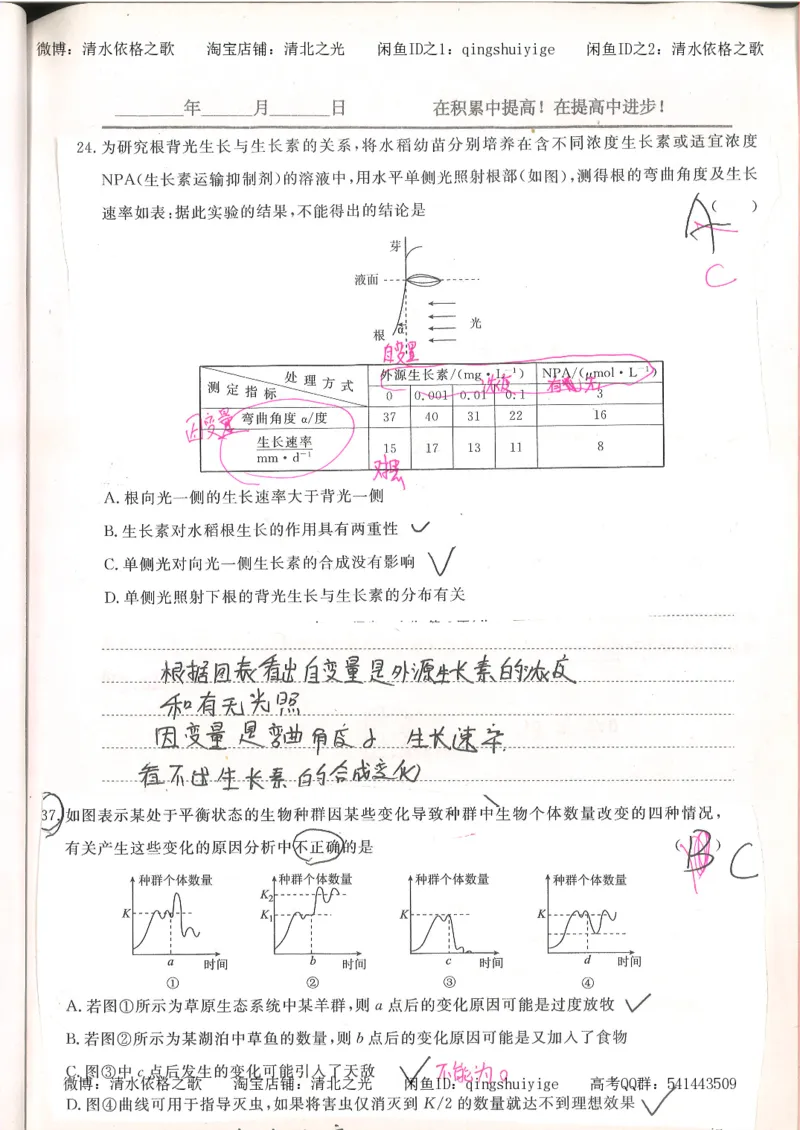 微博：清水依格之歌 淘宝店铺：清北之光 闲鱼ID之1：qingshuiyige 闲鱼ID之2：清水依格之歌
______年______月______日 在积累中提高！在提高中进步！
24.为研究根背光生长与生长素的关系,将水稻幼苗分别培养在含不同浓度生长素或适宜浓度
NPA(生长素运输抑制剂)的溶液中,用水平单侧光照射根部(如图),测得根的弯曲角度及生长
速率如表:据此实验的结果,不能得出的结论是 ( )
A
C
芽
液面
光
根 α
自变量
处理方式 外源生长素/(mg·L⁻¹) NPA/(μmol·L⁻¹)
浓度
测定指标 0 0.001 0.01 0.1 3
因变量
弯曲角度 α/度 37 40 31 22 16
生长速率
mm·d⁻¹ 15 17 13 11 8
对照
A.根向光一侧的生长速率大于背光一侧
B.生长素对水稻根生长的作用具有两重性
C.单侧光对向光一侧生长素的合成没有影响
D.单侧光照射下根的背光生长与生长素的分布有关
根据图表看出自变量是外源生长素的浓度
和有无光照
因变量是弯曲角度α 生长速率
看不出生长素的合成变化
37.如图表示某处于平衡状态的生物种群因某些变化导致种群中生物个体数量改变的四种情况,
有关产生这些变化的原因分析中不正确的是 ( )
B C
种群个体数量 种群个体数量 种群个体数量 种群个体数量
K K₂ K₁ K K
a 时间 b 时间 c 时间 d 时间
① ② ③ ④
A.若图①所示为草原生态系统中某羊群,则 a 点后的变化原因可能是过度放牧
B.若图②所示为某湖泊中草鱼的数量,则 b 点后的变化原因可能是又加入了食物
C.图③中 c 点后发生的变化可能引入了天敌 不能为0
微博：清水依格之歌 淘宝店铺：清北之光 闲鱼ID：qingshuiyige 高考QQ群：541443509
D.图④曲线可用于指导灭虫,如果将害虫仅消灭到 K/2 的数量就达不到理想效果